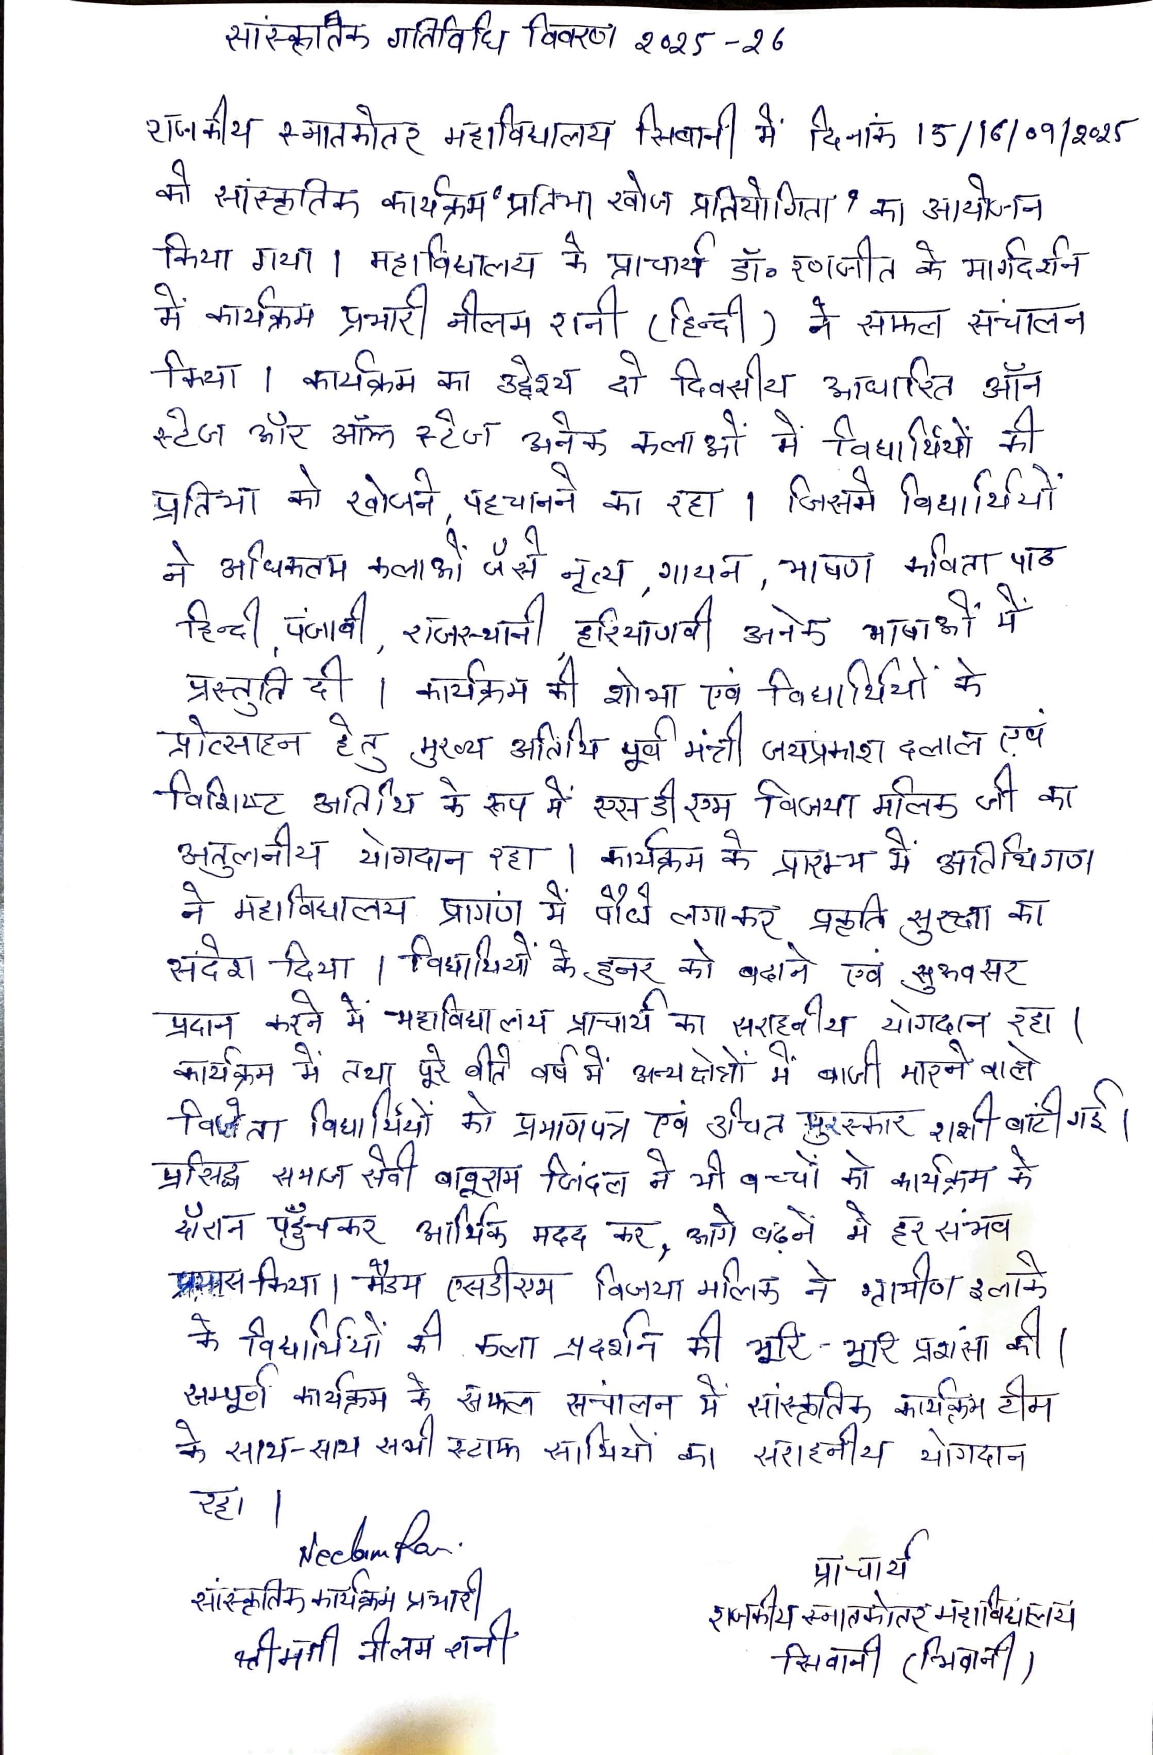 सांस्कृतिक गतिविधि विवरण २०२५-२६
राजकीय स्नातकोतर महाविद्यालय सिवानी में दिनांक 15/16/09/२०२५
को सांस्कृतिक कार्यक्रम "प्रतिभा खोज प्रतियोगिता" का आयोजन
किया गया । महाविद्यालय के प्राचार्य डॉ० रणजीत के मार्गदर्शन
में कार्यक्रम प्रभारी नीलम रानी (हिन्दी) ने सफल संचालन
किया । कार्यक्रम का उद्देश्य दो दिवसीय आधारित ऑन
स्टेज और ऑफ स्टेज अनेक कलाओं में विद्यार्थियों की
प्रतिभा को खोजने, पहचानने का रहा । जिसमें विद्यार्थियों
ने अधिकतम कलाओं जैसे नृत्य, गायन, भाषण कविता पाठ
हिन्दी, पंजाबी, राजस्थानी, हरियाणवी अनेक भाषाओं में
प्रस्तुति दी । कार्यक्रम की शोभा एवं विद्यार्थियों के
प्रोत्साहन हेतु मुख्य अतिथि पूर्व मंत्री जयप्रकाश दलाल एवं
विशिष्ट अतिथि के रूप में एसडीएम विजया मलिक जी का
अतुलनीय योगदान रहा । कार्यक्रम के प्रारम्भ में अतिथिगण
ने महाविद्यालय प्रागंण में पौधे लगाकर प्रकृति सुरक्षा का
संदेश दिया । विद्यार्थियों के हुनर को बढाने एवं सुअवसर
प्रदान करने में महाविद्यालय प्राचार्य का सराहनीय योगदान रहा ।
कार्यक्रम में तथा पूरे बीते वर्ष में अन्य क्षेत्रों में बाजी मारने वाले
विजेता विद्यार्थियों को प्रमाणपत्र एवं उचित पुरस्कार राशी बांटी गई ।
प्रसिद्ध समाज सेवी बाबूराम जिंदल ने भी बच्चों को कार्यक्रम के
दौरान पहुँचकर आर्थिक मदद कर, आगे बढ़नें में हर संभव
प्रयास किया । मैडम एसडीएम विजया मलिक ने ग्रामीण इलाके
के विद्यार्थियों की कला प्रदर्शन की भूरि-भूरि प्रशंसा की ।
सम्पूर्ण कार्यक्रम के सफल संचालन में सांस्कृतिक कार्यक्रम टीम
के साथ-साथ सभी स्टाफ साथियों का सराहनीय योगदान
रहा ।
Neelam Ran.
सांस्कृतिक कार्यक्रम प्रभारी
श्रीमती नीलम रानी
प्राचार्य
राजकीय स्नातकोतर महाविद्यालय
सिवानी (भिवानी)